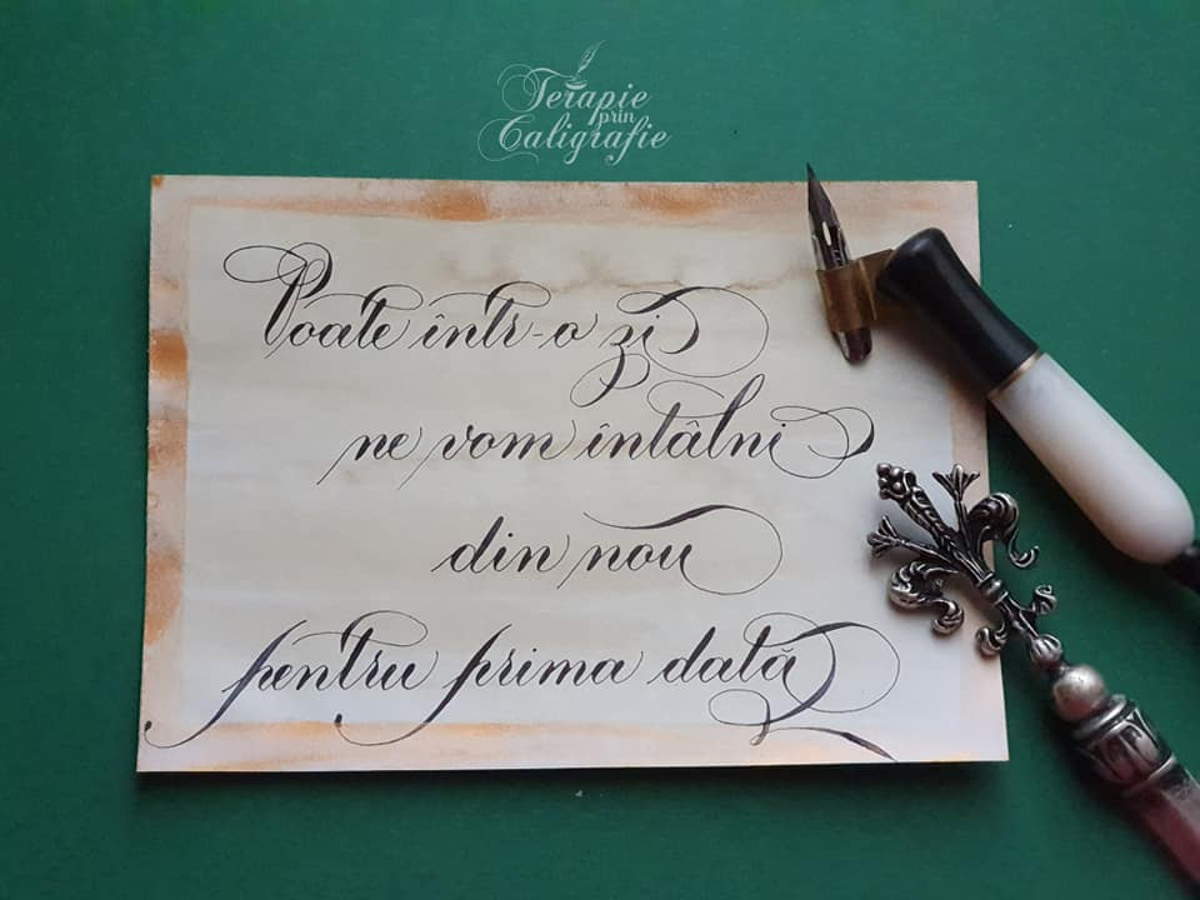 Terapie
prin
Caligrafie
Poate într-o zi
ne vom întâlni
din nou
pentru prima dată